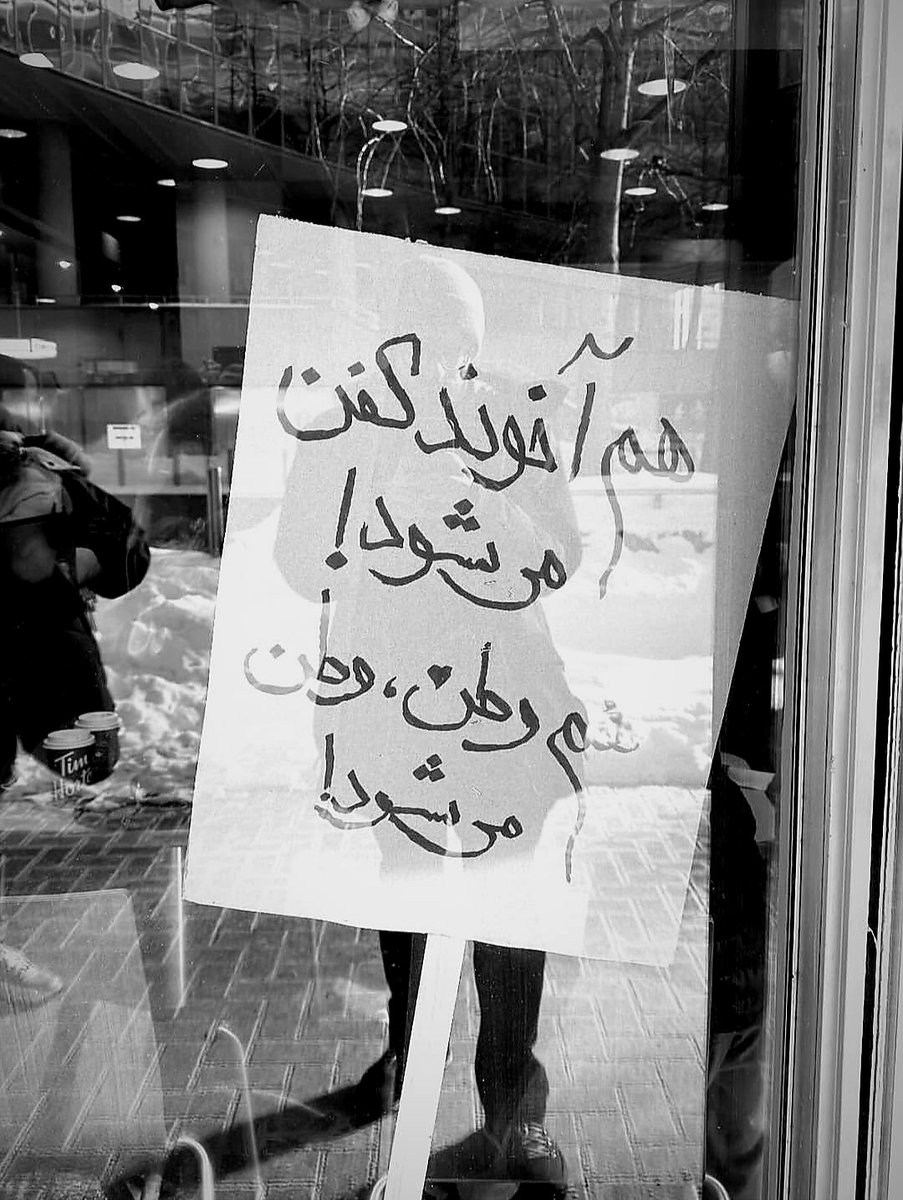 هم آخوند کفن
می شود!
هم وطن، وطن
می شود!
Tim